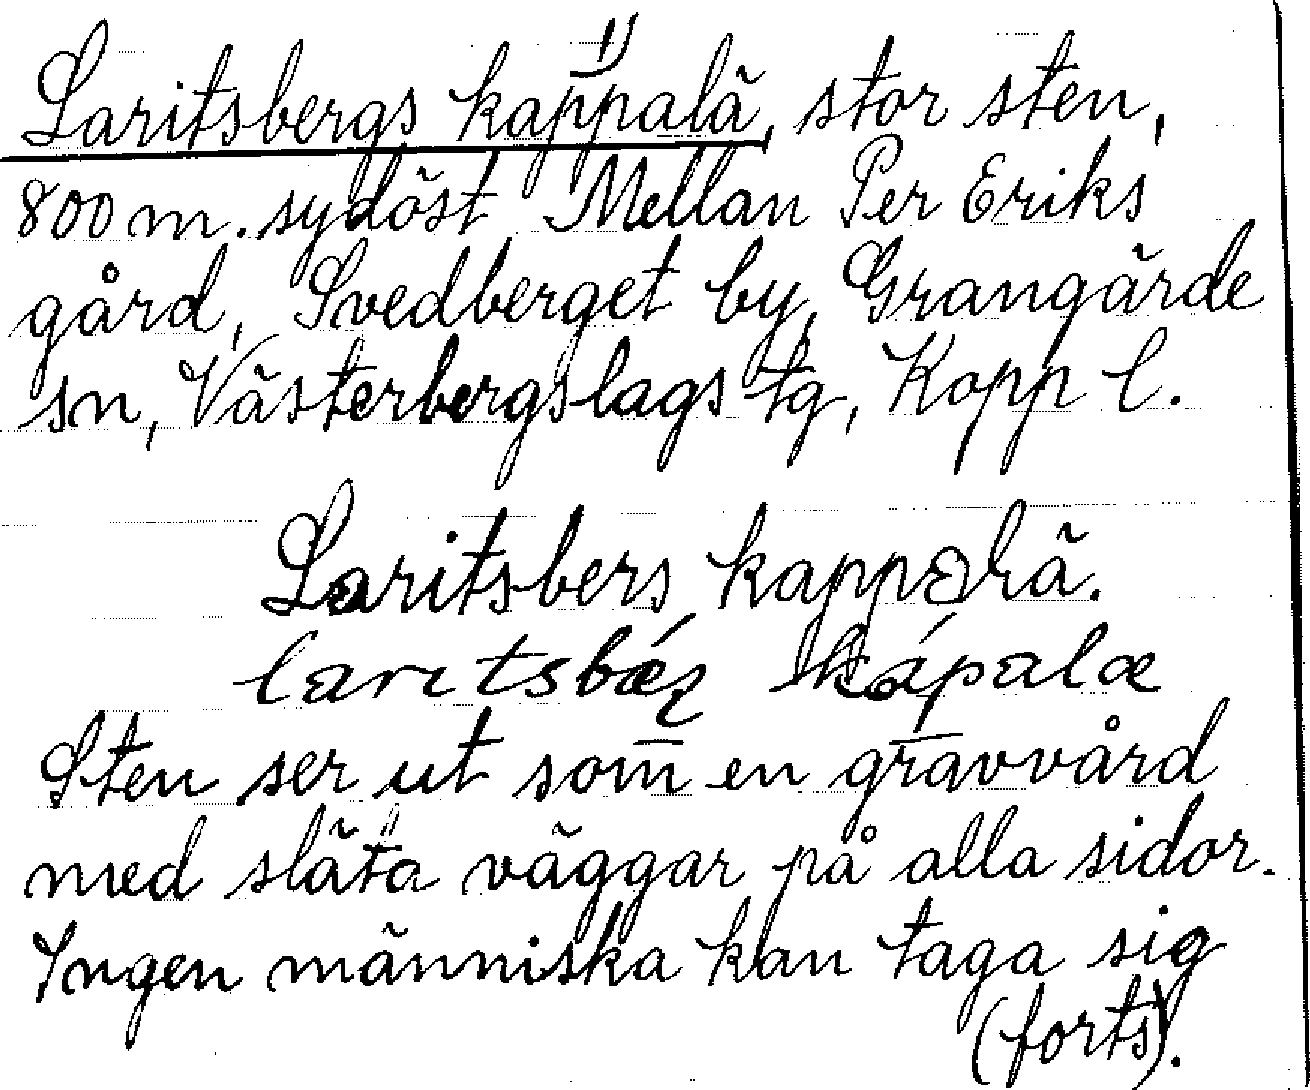 Laritsbergs kappalä¹⁾, stor sten,
800 m. sydöst Mellan Per Eriks
gård, Svedberget by, Grangärde
sn, Västerbergslags tg, Kopp l.
Laritsbers kappalä.
Sten ser ut som en gravvård
med släta väggar på alla sidor.
Ingen människa kan taga sig
(forts).